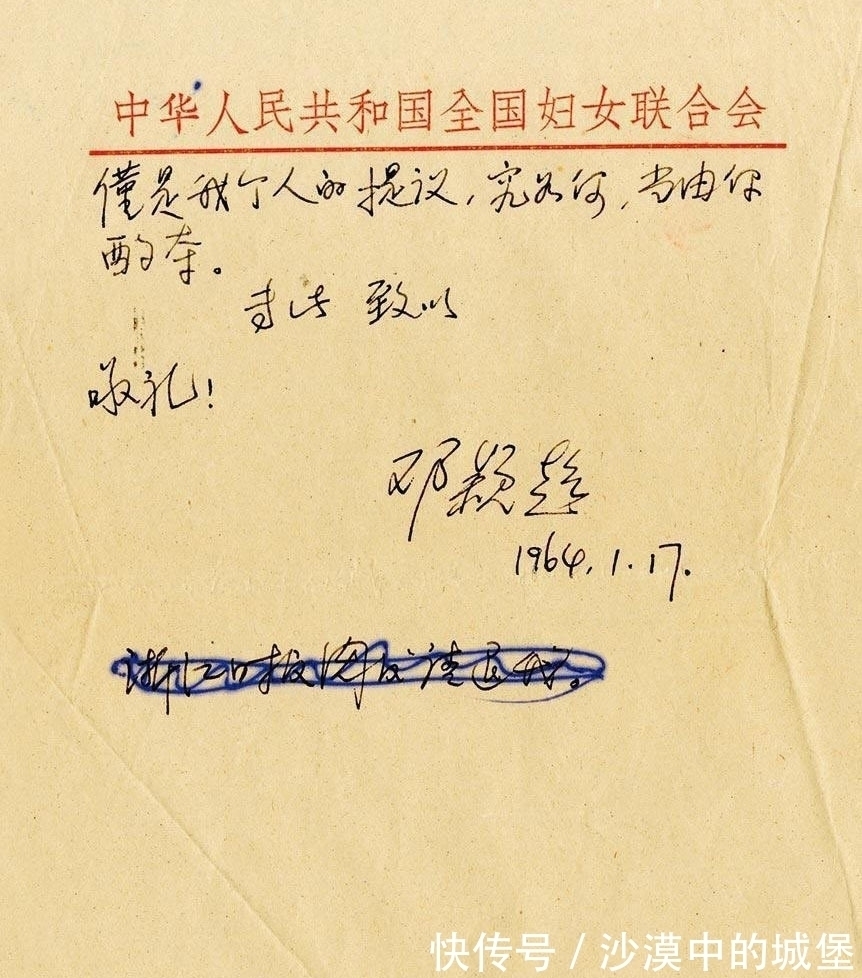 中华人民共和国全国妇女联合会
僅是我个人的提议，究如何，当由你
酌夺。
专此 致以
敬礼！
邓颖超
1964.1.17.
浙江日报阅后请退我。
快传号 / 沙漠中的城堡